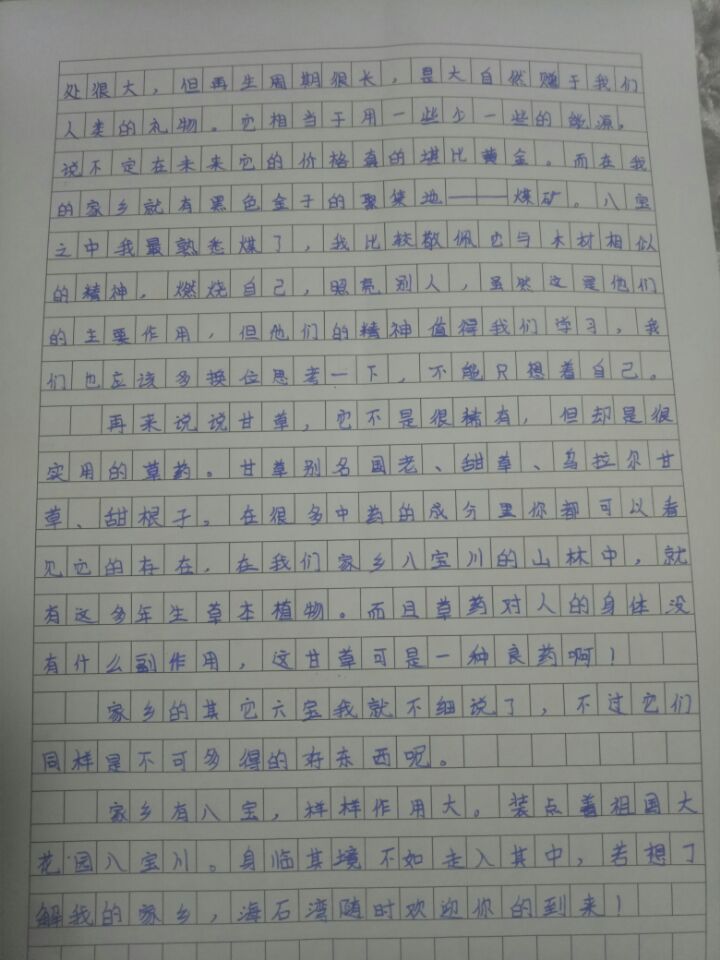 处很大，但再生周期很长，是大自然赠于我们
人类的礼物。它相当于用一些少一些的能源，
说不定在未来它的价格真的堪比黄金。而在我
的家乡就有黑色金子的聚集地——煤矿。八宝
之中我最熟悉煤了，我比较敬佩它与木材相似
的精神，燃烧自己，照亮别人，虽然这是他们
的主要作用，但他们的精神值得我们学习，我
们也应该多换位思考一下，不能只想着自己。
再来说说甘草，它不是很稀有，但却是很
实用的草药。甘草别名国老、甜草、乌拉尔甘
草、甜根子。在很多中药的成分里你都可以看
见它的存在，在我们家乡八宝川的山林中，就
有这多年生草本植物。而且草药对人的身体没
有什么副作用，这甘草可是一种良药啊！
家乡的其它六宝我就不细说了，不过它们
同样是不可多得的好东西呢。
家乡有八宝，样样作用大。装点着祖国大
花园八宝川。身临其境不如走入其中，若想了
解我的家乡，海石湾随时欢迎你的到来！